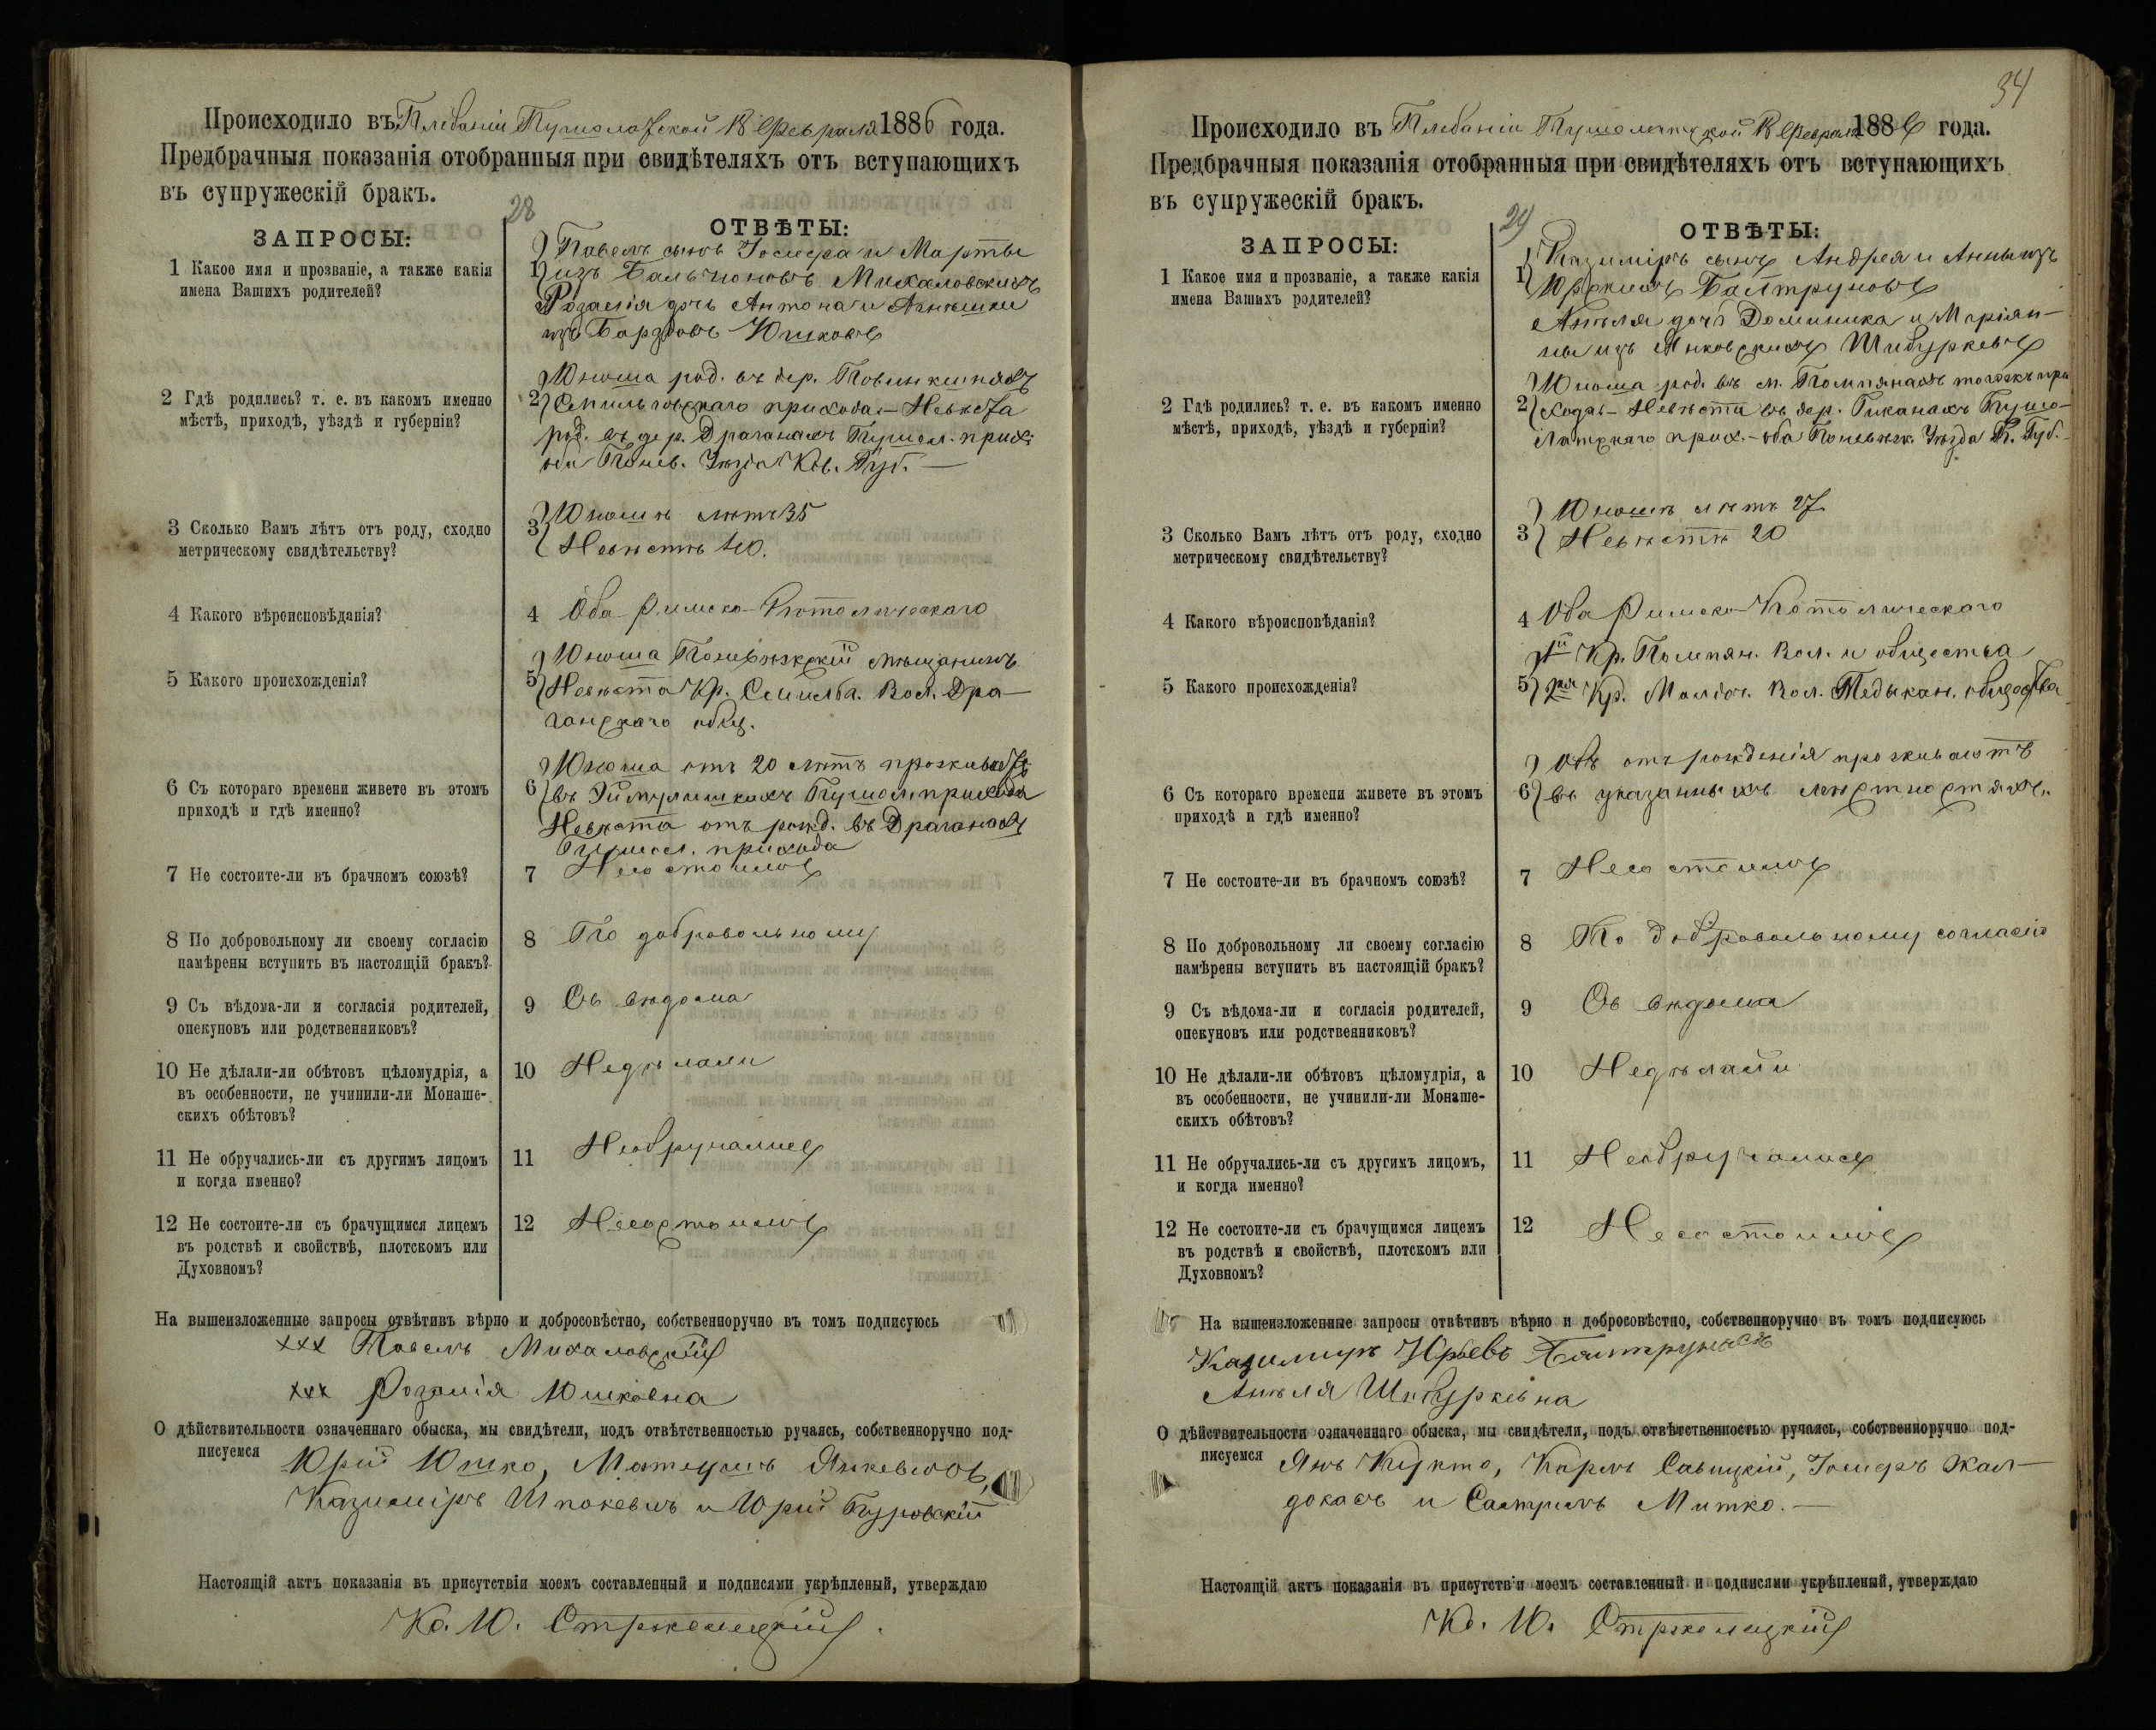 Происходило въ Плебаніи Пушолатской 18 Февраля 1886 года.
Предбрачныя показанія отобранныя при свидѣтеляхъ отъ вступающихъ
въ супружескій бракъ.
28
ЗАПРОСЫ:
ОТВѢТЫ:
1 Какое имя и прозваніе, а также какія
имена Вашихъ родителей?
1) Павелъ сынъ Іосифа и Марты
изъ Михаловскихъ
Розалія дочь Антона и
изъ Юшковъ
2 Гдѣ родились? т. е. въ какомъ именно
мѣстѣ, приходѣ, уѣздѣ и губерніи?
2) Юноша род. въ дер.
прихода – Невѣста
род. въ дер. Драганахъ Пушол. прих.
оба Понев. Уѣзда Ков. Губ. —
3 Сколько Вамъ лѣтъ отъ роду, сходно
метрическому свидѣтельству?
3) Юношѣ лѣтъ 35
Невѣстѣ
4 Какого вѣроисповѣданія?
4 Оба Римско-Католическаго
5 Какого происхожденія?
5) Юноша Поневѣжскій мѣщанинъ
Невѣста Кр. Вол. Дра-
ганскаго общ.
6 Съ котораго времени живете въ этомъ
приходѣ и гдѣ именно?
6) Юноша отъ 20 лѣтъ проживаетъ
въ Пушол. прихода
Невѣста отъ рожд. въ Драганахъ
Пушол. прихода
7 Не состоите-ли въ брачномъ союзѣ?
7 Несостоимъ
8 По добровольному ли своему согласію
намѣрены вступить въ настоящій бракъ?
8 По добровольному
9 Съ вѣдома-ли и согласія родителей,
опекуновъ или родственниковъ?
9 Съ вѣдома
10 Не дѣлали-ли обѣтовъ цѣломудрія, а
въ особенности, не учинили-ли Монаше-
скихъ обѣтовъ?
10 Недѣлали
11 Не обручались-ли съ другимъ лицомъ
и когда именно?
11 Необручались
12 Не состоите-ли съ брачущимся лицемъ
въ родствѣ и свойствѣ, плотскомъ или
Духовномъ?
12 Несостоимъ
На вышеизложенные запросы отвѣтивъ вѣрно и добросовѣстно, собственноручно въ томъ подписуюсь
xxx Павелъ Михаловскій
xxx Розалія Юшковна
О дѣйствительности означеннаго обыска, мы свидѣтели, подъ отвѣтственностью ручаясь, собственноручно под-
писуемся Юрій Юшко, Матеушъ
Казиміръ и Юрій
Настоящій актъ показанія въ присутствіи моемъ составленный и подписями укрѣпленый, утверждаю
Кс. Ю. Стржемецкій
34
Происходило въ Плебаніи Пушолатской 18 Февраля 1886 года.
Предбрачныя показанія отобранныя при свидѣтеляхъ отъ вступающихъ
въ супружескій бракъ.
29
ЗАПРОСЫ:
ОТВѢТЫ:
1 Какое имя и прозваніе, а также какія
имена Вашихъ родителей?
1) Казиміръ сынъ Андрея и Анны изъ
Балтруновъ
Анѣля дочь Доминика и Маріян-
ны изъ Янковскихъ Шибуркевъ
2 Гдѣ родились? т. е. въ какомъ именно
мѣстѣ, приходѣ, уѣздѣ и губерніи?
2) Юноша род. въ м. Помпянахъ тогожъ при
хода – Невѣста въ дер. Пушо-
латскаго прих. – оба Поневѣж. Уѣзда К. Губ.
3 Сколько Вамъ лѣтъ отъ роду, сходно
метрическому свидѣтельству?
3) Юношѣ лѣтъ 27
Невѣстѣ 20
4 Какого вѣроисповѣданія?
4 Оба Римско Католическаго
5 Какого происхожденія?
5) 1й Кр. Помпян. Вол. и общества
2ая Кр. Вол. общества
6 Съ котораго времени живете въ этомъ
приходѣ и гдѣ именно?
6) Оба отъ рожденія проживаютъ
въ указанныхъ мѣстностяхъ.
7 Не состоите-ли въ брачномъ союзѣ?
7 Несостоимъ
8 По добровольному ли своему согласію
намѣрены вступить въ настоящій бракъ?
8 По добровольному согласію
9 Съ вѣдома-ли и согласія родителей,
опекуновъ или родственниковъ?
9 Съ вѣдома
10 Не дѣлали-ли обѣтовъ цѣломудрія, а
въ особенности, не учинили-ли Монаше-
скихъ обѣтовъ?
10 Недѣлали
11 Не обручались-ли съ другимъ лицомъ,
и когда именно?
11 Необручались
12 Не состоите-ли съ брачущимся лицемъ
въ родствѣ и свойствѣ, плотскомъ или
Духовномъ?
12 Несостоимъ
На вышеизложенные запросы отвѣтивъ вѣрно и добросовѣстно, собственноручно въ томъ подписуюсь
Казимиръ Юрьевъ
Анѣля Шибуркевна
О дѣйствительности означеннаго обыска, мы свидѣтели, подъ отвѣтственностью ручаясь, собственноручно под-
писуемся Янъ Кукта, Карлъ Савицкій, Іосифъ Жал-
докасъ и Митко. —
Настоящій актъ показанія въ присутствіи моемъ составленный и подписями укрѣпленый, утверждаю
Кс. Ю. Стржемецкій